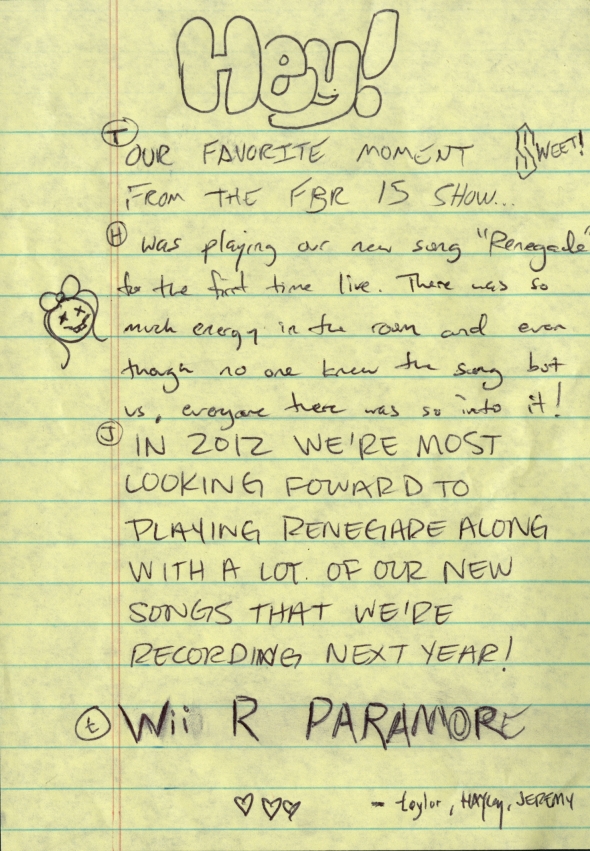 Hey!
T
OUR FAVORITE MOMENT SWEET!
FROM THE FBR 15 SHOW...
H was playing our new song "Renegade"
for the first time live. There was so
much energy in the room and even
though no one knew the song but
us, everyone there was so into it!
J IN 2012 WE'RE MOST
LOOKING FOWARD TO
PLAYING RENEGADE ALONG
WITH A LOT OF OUR NEW
SONGS THAT WE'RE
RECORDING NEXT YEAR!
t Wii R PARAMORE
- taylor, HAYley, JEREMY